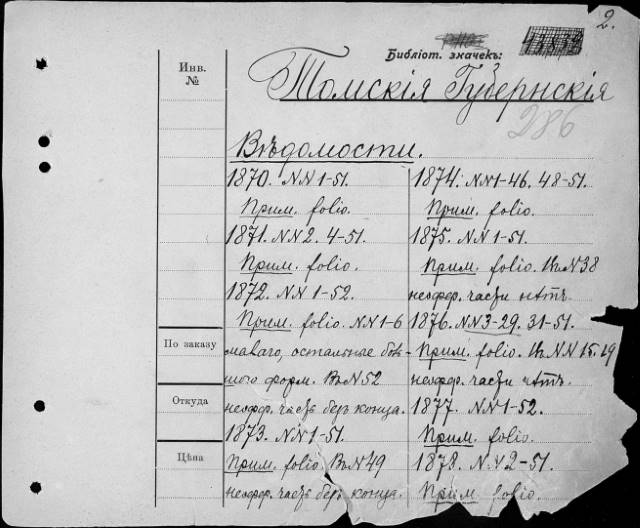 2.
Библіот. значекъ:
Инв.
№
Томскія Губернскія
286
Вѣдомости.
1870. NN 1-51.
Прим. folio.
1871. NN 2. 4-51.
Прим. folio.
1872. NN 1-52.
Прим. folio. NN 1-6
малаго, остальные боль-
шого форм. Въ N 52
неофф. часть безъ конца.
1873. NN 1-51.
Прим. folio. Въ N 49
неофф. часть безъ конца.
1874. NN 1-46. 48-51.
Прим. folio.
1875. NN 1-51.
Прим. folio. Къ N 38
неофф. части нѣтъ.
1876. NN 3-29. 31-51.
Прим. folio. Къ NN 15. 19
неофф. части нѣтъ.
1877. NN 1-52.
Прим. folio.
1878. NN 2-51.
Прим. folio.
По заказу
Откуда
Цѣна